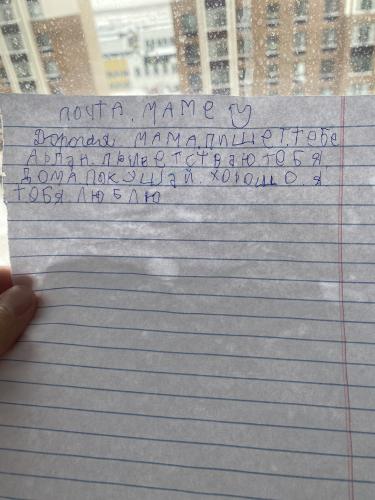 ПОЧТА. МАМЕ
Дорогая МАМА. ПИШЕТ. ТЕБЕ
АРЛАН. ПРИВЕТСТВАЮ ТЕБЯ
ДОМА ПОКУШАЙ. ХОРОШО. Я
ТЕБЯ. ЛЮБЛЮ